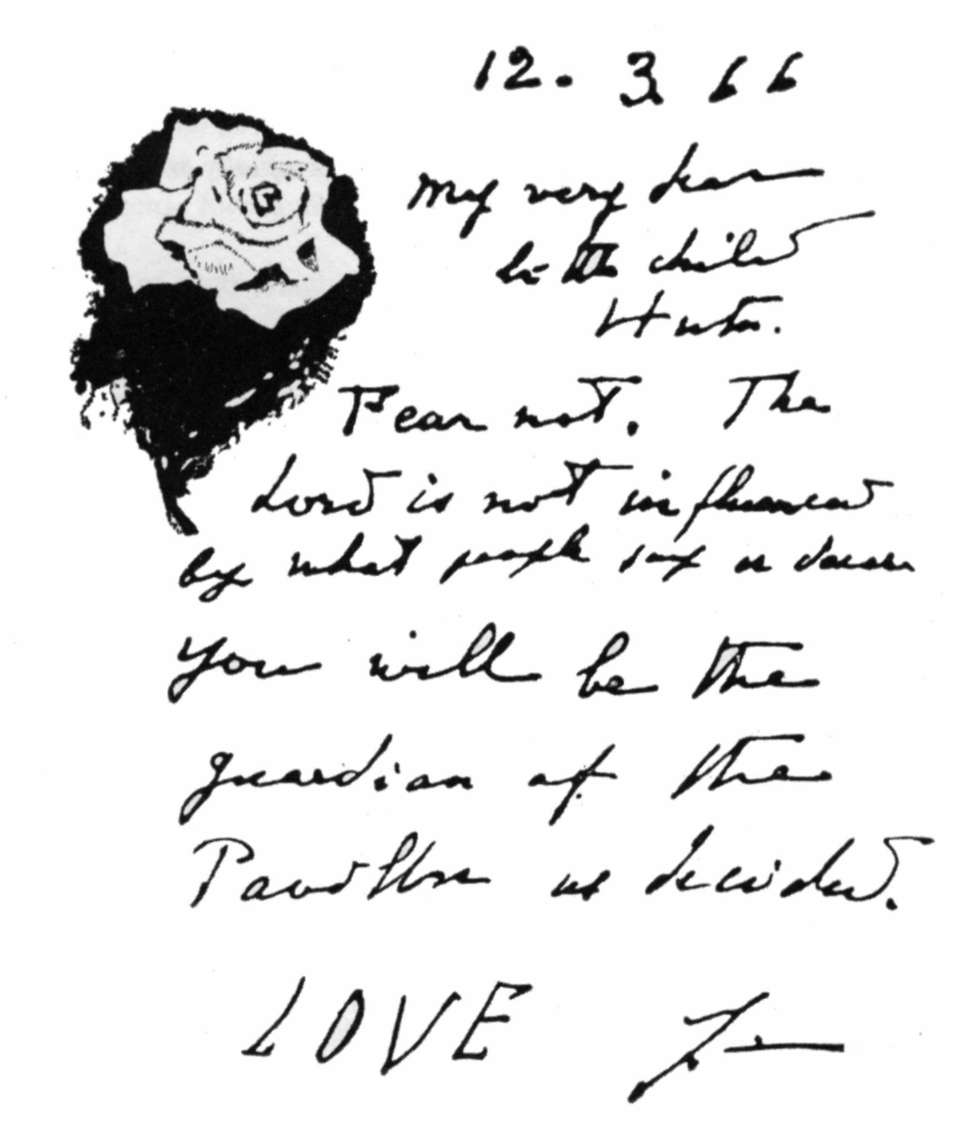 12. 3. 66
My very dear
little child
Huta.
Fear not. The
Lord is not influenced
by what people say or desire
You will be the
guardian of the
Pavillon as decided.
LOVE